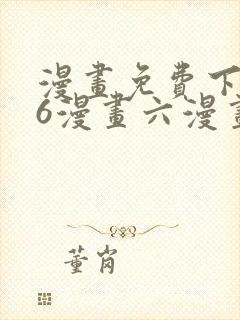 漫畫免費下
6漫畫六漫畫
董肖